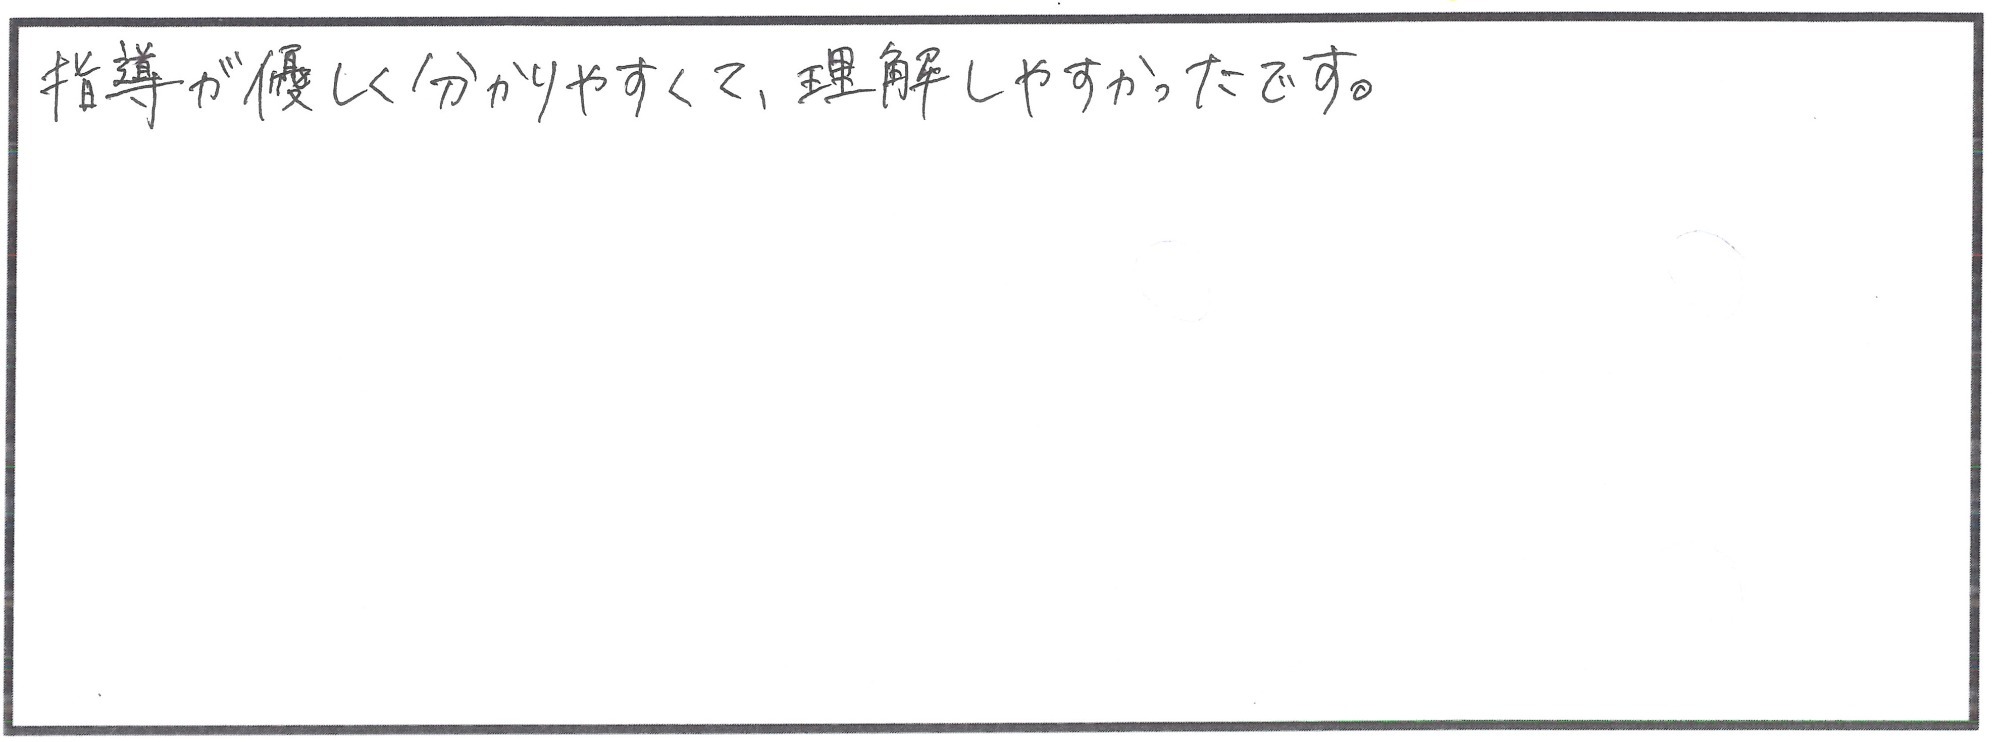 指導が優しく分かりやすくて、理解しやすかったです。